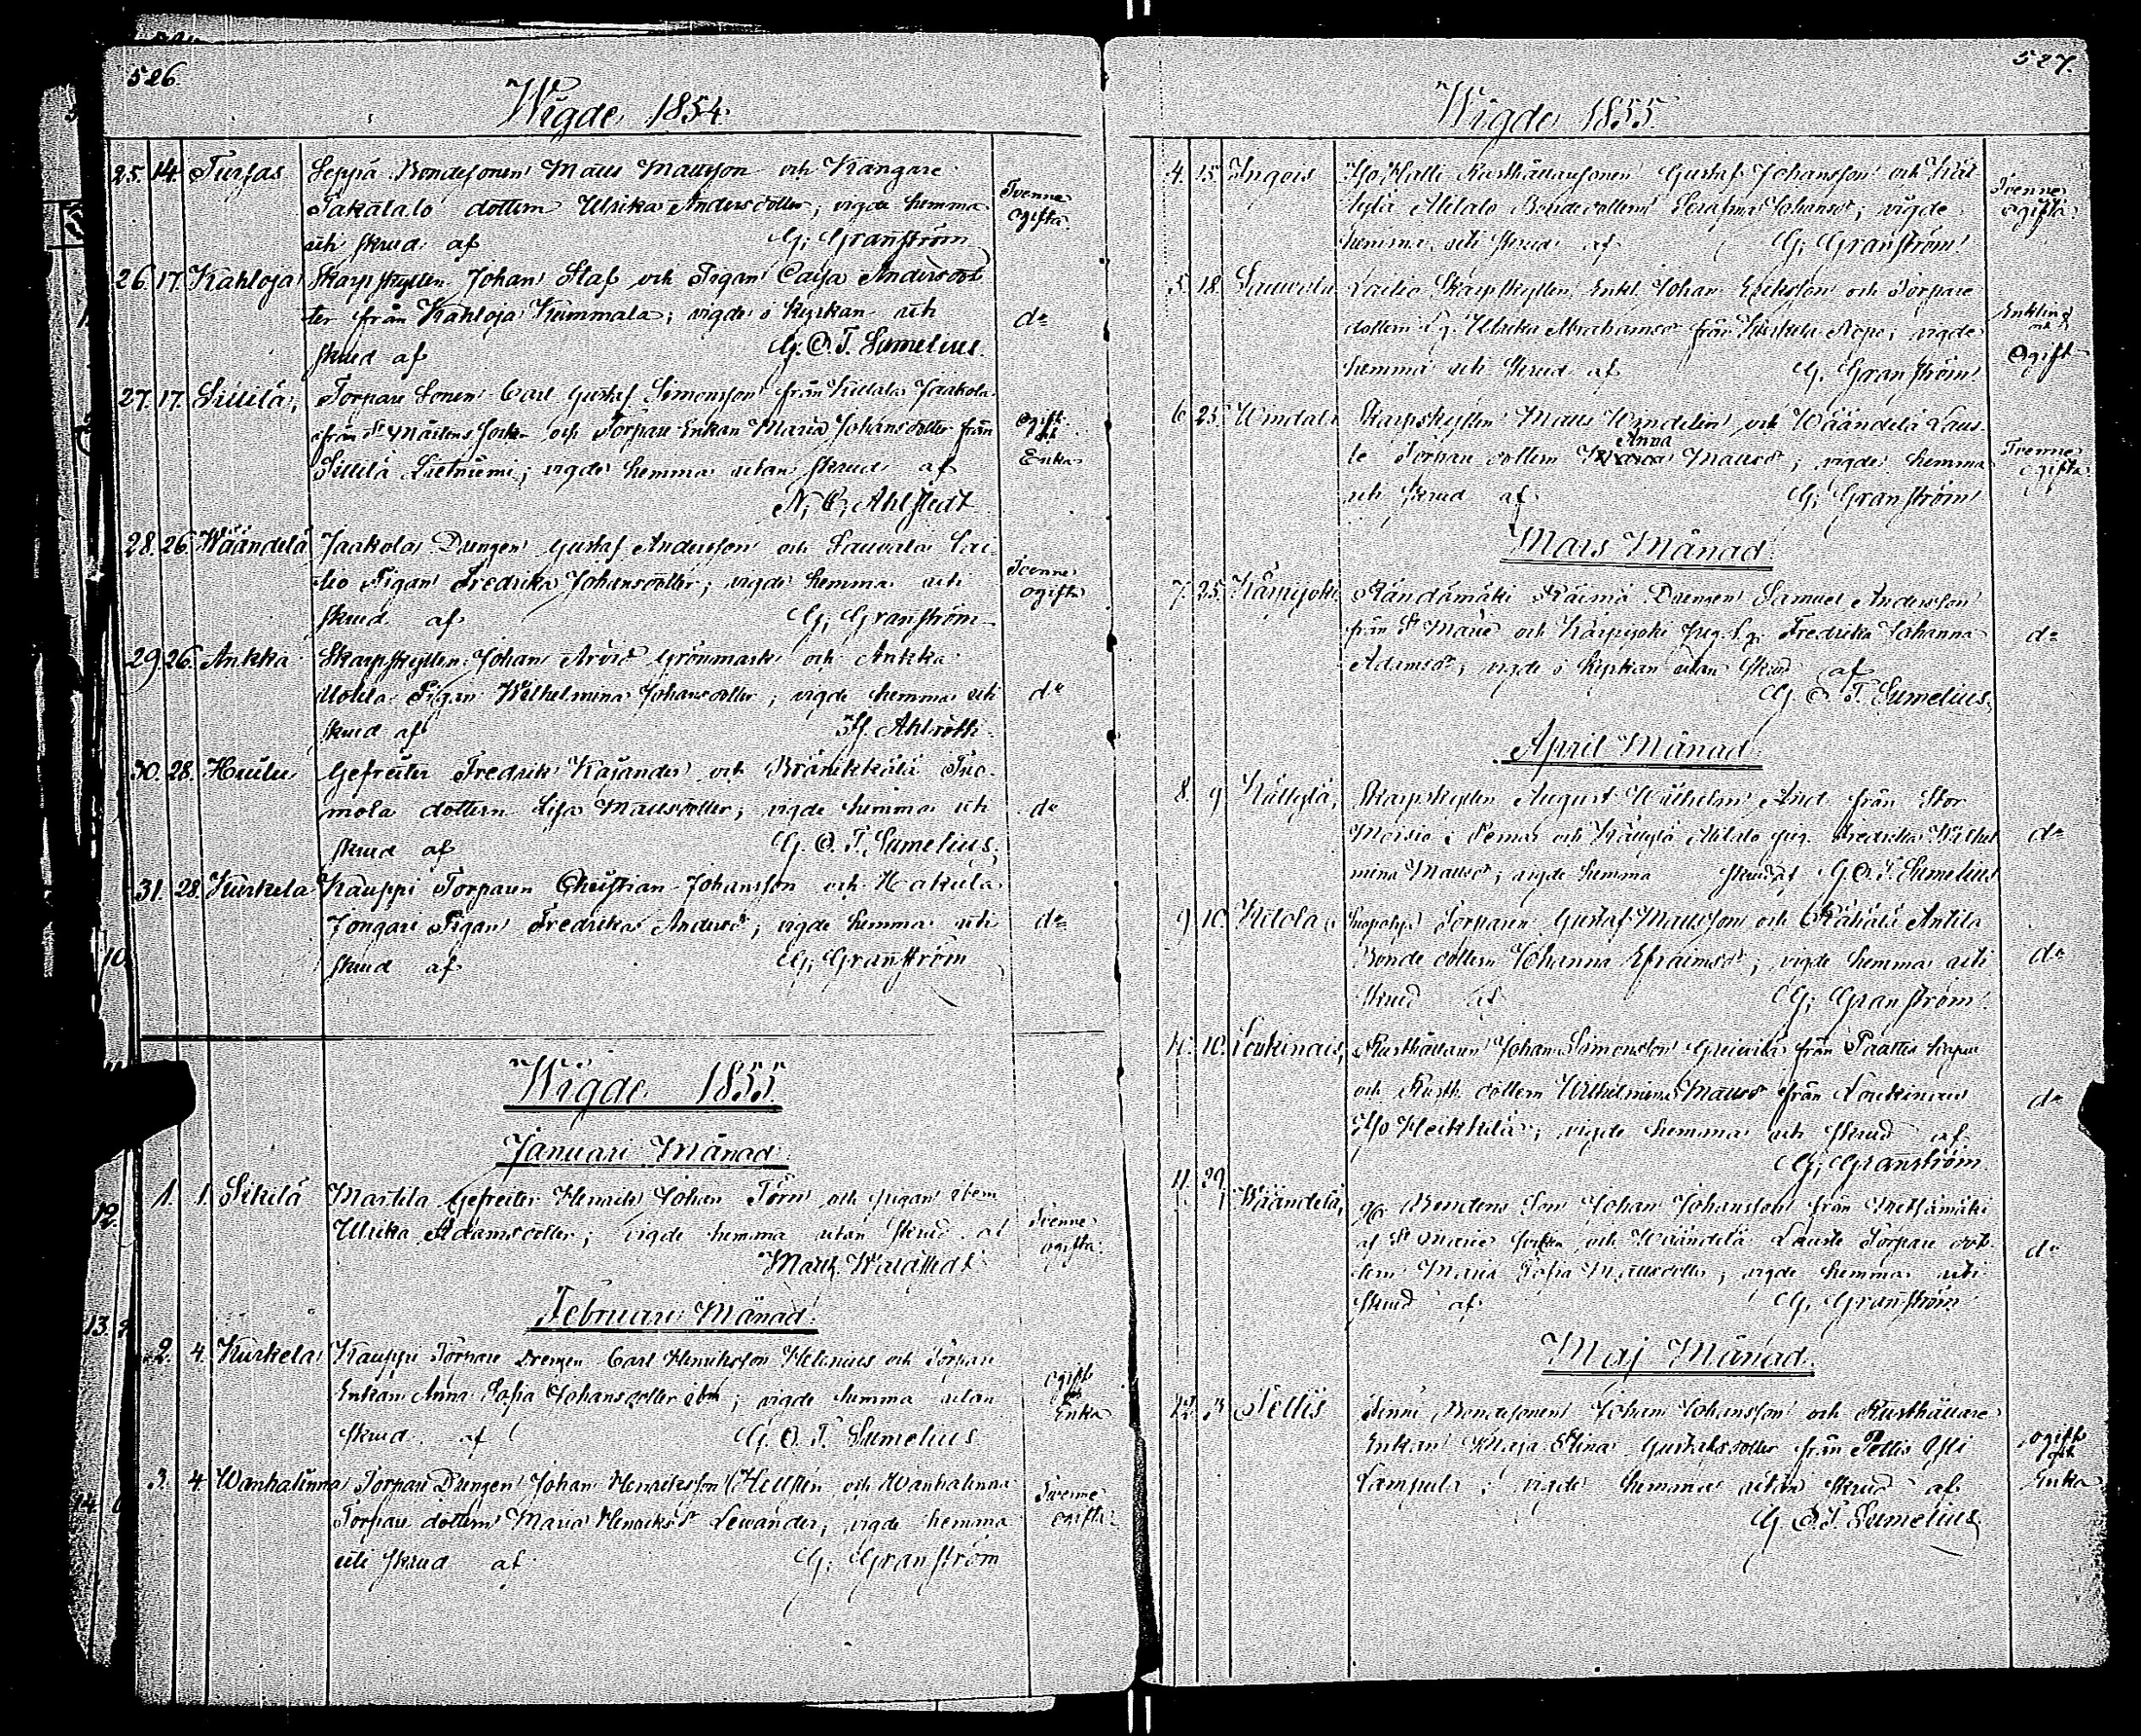 526.
Wigde 1854.
25. 14. Turjas Seppä Bondesonen Matts Mattsson och Kangare
Takalalo dottern Ulrika Andersdotter; vigde hemma
uti skrud af G. Granström
Tvenne
ogifta
26 17. Kahloja Skarpskytten Johan Staf och Pigan Caisa Andersdot
ter från Kahloja Kummala; vigde i Kyrkan uti
skrud af G. O. T. Sumelius.
do
27. 17. Torpare Sonen Carl Gustaf Simonsson från Jaakola
från St Mårtens Socken och Torpare Enkan Maria Johansdotter från
; vigde hemma utan skrud af
N. C. Ahlstedt
ogift
och
Enka
28. 26. Wääntelä Jaakola Drengen Gustaf Andersson och Sauvala Lai
lio Pigan Fredrika Johansdotter; vigde hemma uti
skrud af G. Granström
Tvenne
ogifta
29 26. Ankka Skarpskytten Johan Arvid Grönmark och Ankka
Uotila Pigan Wilhelmina Johansdotter; vigde hemma uti
skrud af Ahlroth.
do
30. 28. Huilu Gefreiter Fredrik Kajander och Brännikkälä Tuo-
mola dottern Lisa Mattsdotter; vigde hemma uti
skrud af G. O. T. Sumelius.
do
31. 28. Kurkela Kauppi Torparen Christian Johansson och Hakula
Jongari Pigan Fredrika Andersdr; vigde hemma uti
skrud af G. Granström
do
Wigde 1855.
Januari Månad.
1. 1. Sikilä Marttila Gefreiter Henrik Johan Törn och pigan ibem
Ulrika Adamsdotter; vigde hemma utan skrud af
Tvenne
ogifta.
Februari Månad.
2. 4. Kurkela Kauppi Torpare Drengen Carl Henriksson Helenius och Torpare
Enkan Anna Sofia Johansdotter ibm; vigde hemma utan
skrud af G. O. T. Sumelius
ogift
och
Enka
3. 4. Wanhalinna Torpare Drengen Johan Henriksson Hellsten och Wanhalinna
Torpare dottern Maria Henriksdr Lewander; vigde hemma
uti skrud af G. Granström
Tvenne
ogifta
527.
Wigde 1855.
4. 15. Ingois Yso Halli Rusthållaresonen Gustaf Johansson och Käl
lylä Alitalo Bondedottern Serafina Johansdr; vigde
hemma uti skrud af G. Granström
Tvenne
ogifta
5. 18. Sauvala Lailio Skarpskytten Enkl. Johan Eriksson och Torpare
dottern Ulrika Abrahamsdr från Kurkela; vigde
hemma uti skrud af G. Granström
Enkling
och
Ogift
6. 25. Skarpskytten Matts Windelin och Wääntelä Laus
te Torpare dottern Anna Mattsdr; vigde hemma
uti skrud af G. Granström
Tvenne
ogifta
Mars Månad.
7. 25. Kärpijoki Räntämäki Räimä Drengen Samuel Andersson
från St Marie och Kärpijoki Fredrika Johanna
Adamsdr; vigde i Kyrkan utan skrud af
G. O. T. Sumelius.
do
April Månad.
8. 9 Källylä, Skarpskytten August Wilhelm från Stor
i Pemar och Källylä Alitalo pig. Fredrika Wilhel
mina Mattsdr; vigde hemma skrud af G. O. T. Sumelius
do
9. 10. Torparen Gustaf Mattsson och Antila
Bonde dottern Johanna Efraimsdr; vigde hemma uti
skrud af G. Granström
do
10. Loukinais, Rusthållaren Johan Simonsson från Paattis kapell
och Rusth. dottern Wilhelmina Mattsdr från Loukinais
Yso Heikkilä; vigde hemma uti skrud af
G. Granström
do
11. 29. Wääntelä, Bondens Son Johan Johansson från Mettämäki
af St Marie Socken och Wääntelä Lauste Torpare dot-
tern Maria Sofia Mattsdotter; vigde hemma uti
skrud af G. Granström
do
Maj Månad.
Pellis Bondesonen Johan Johansson och Rusthållare
Enkan Maja Stina Gustafsdotter från Pellis
; vigde hemma utan skrud af
G. O. T. Sumelius
ogift
och
Enka